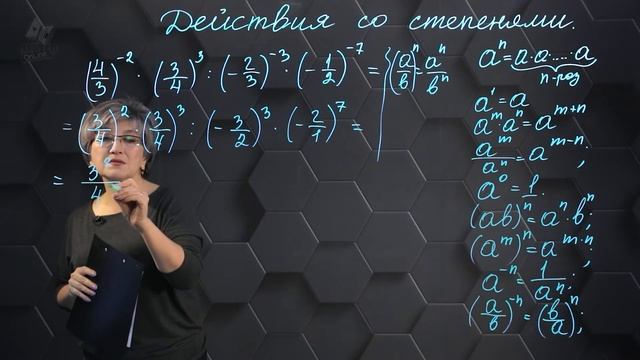 Действия со степенями.
(4/3)⁻² · (3/4)³ : (-2/3)⁻³ · (-1/2)⁻⁷ =
= (3/4)² · (3/4)³ : (-3/2)³ · (-2/1)⁷ =
= 3²/4
(a/b)ⁿ = aⁿ/bⁿ
aⁿ = a·a·...·a
n-раз
a¹ = a
aᵐ·aⁿ = aᵐ⁺ⁿ
aᵐ/aⁿ = aᵐ⁻ⁿ;
a⁰ = 1.
(ab)ⁿ = aⁿ·bⁿ;
(aᵐ)ⁿ = aᵐ·ⁿ;
a⁻ⁿ = 1/aⁿ;
(a/b)⁻ⁿ = (b/a)ⁿ;